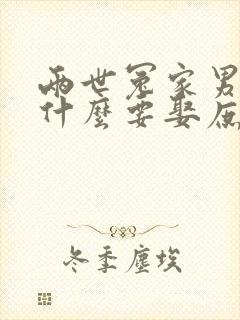 兩世冤家男
什麼要娶庶
冬季塵埃